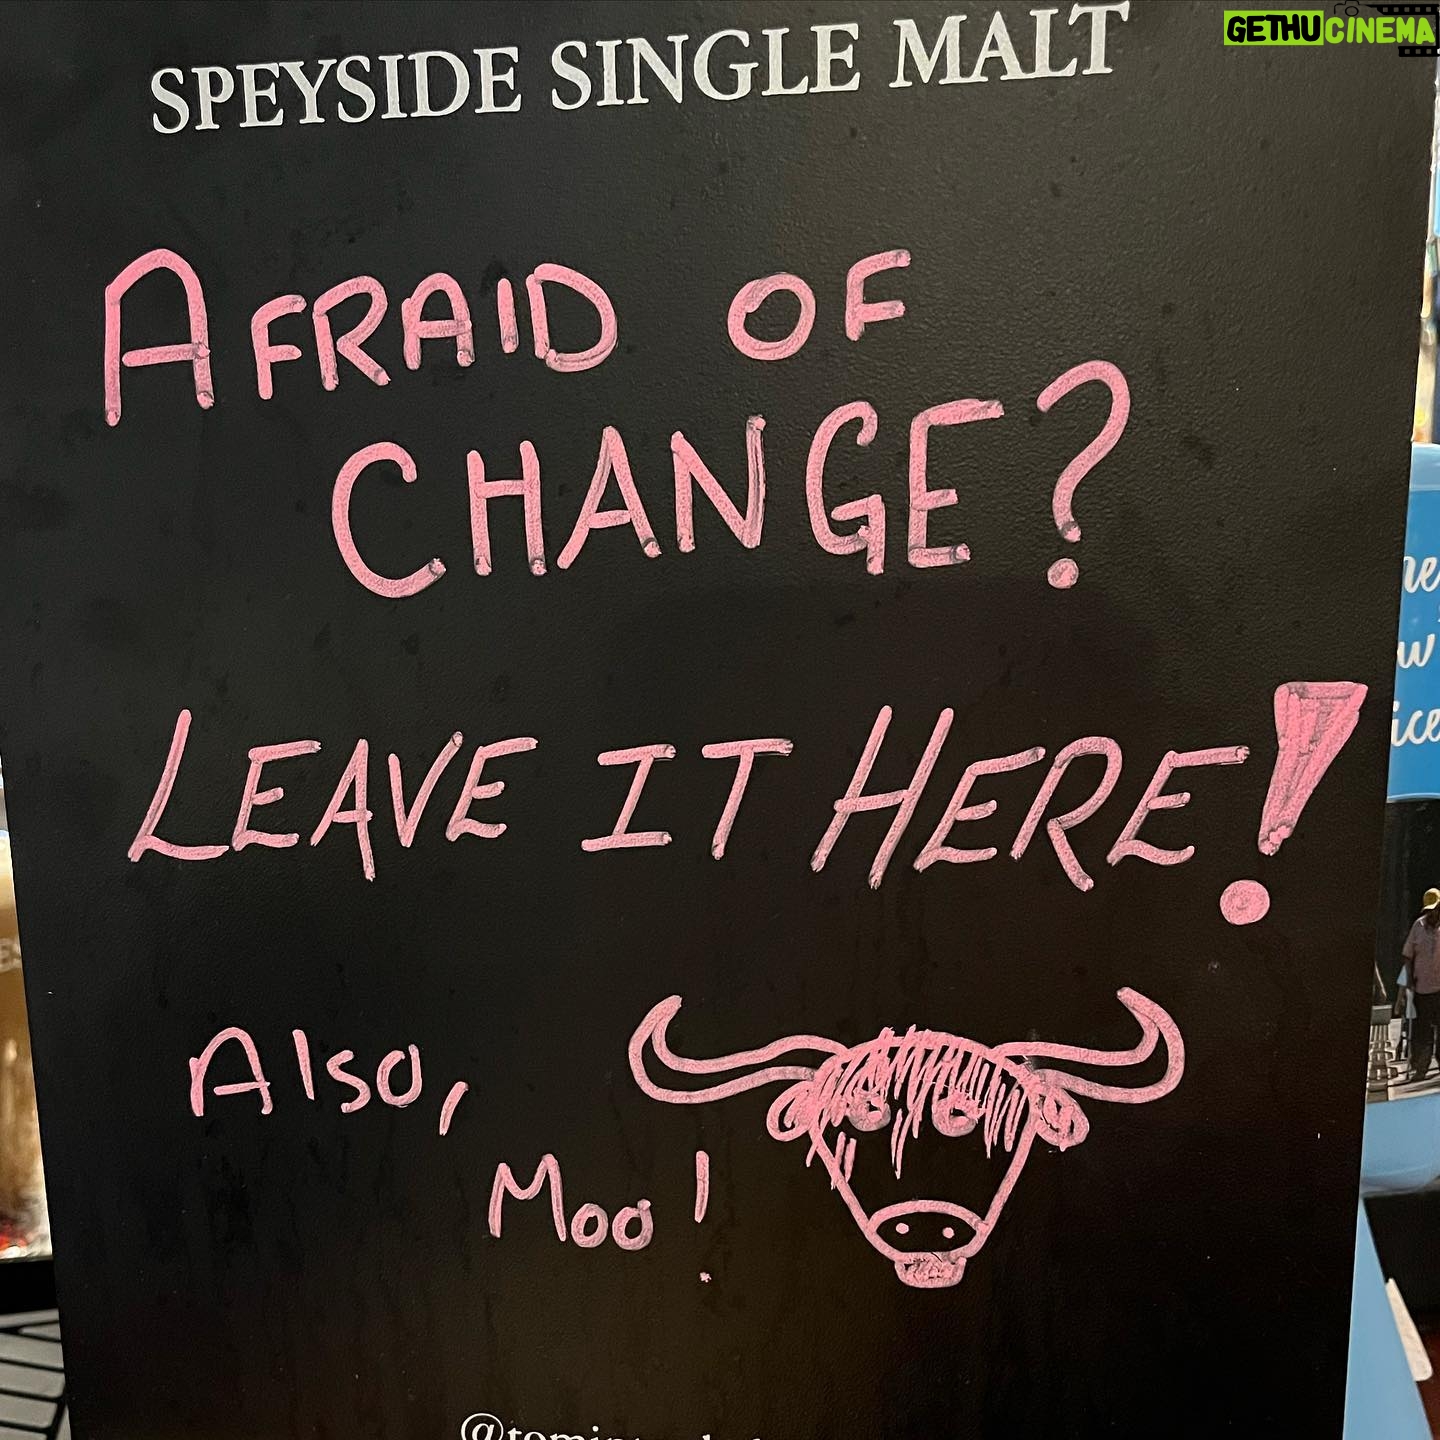 GETHUCINEMA
SPEYSIDE SINGLE MALT
AFRAID OF
CHANGE?
LEAVE IT HERE!
Also,
Moo!